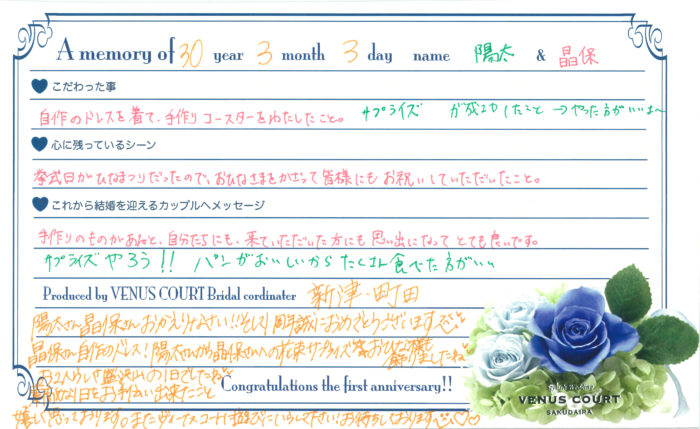 A memory of 30 year 3 month 3 day name 陽太 & 晶保
こだわった事
自作のドレスを着て、手作りコースターをわたしたこと。 サプライズ が成功したこと →やった方がいいよ〜
心に残っているシーン
挙式日がひなまつりだったので、おひなさまをかざって皆様にもお祝いしていただいたこと。
これから結婚を迎えるカップルへメッセージ
手作りのものがあると、自分たちにも、来ていただいた方にも思い出になってとても良いです。
サプライズやろう!! パンがおいしいからたくさん食べた方がいい
Produced by VENUS COURT Bridal cordinater 新津・町田
陽太さん晶保さんおかえりなさい!!そして1周年誠におめでとうございます
晶保さん自作のドレス!陽太さんから晶保さんへの花束サプライズ おひな様も
お2人らしさ盛沢山の1日でしたね
お手伝い出来たこと
Congratulations the first anniversary!!
嬉しく思っております。またヴィーナスコートに遊びにいらして下さい お待ちしております
VENUS COURT
SAKUDAIRA